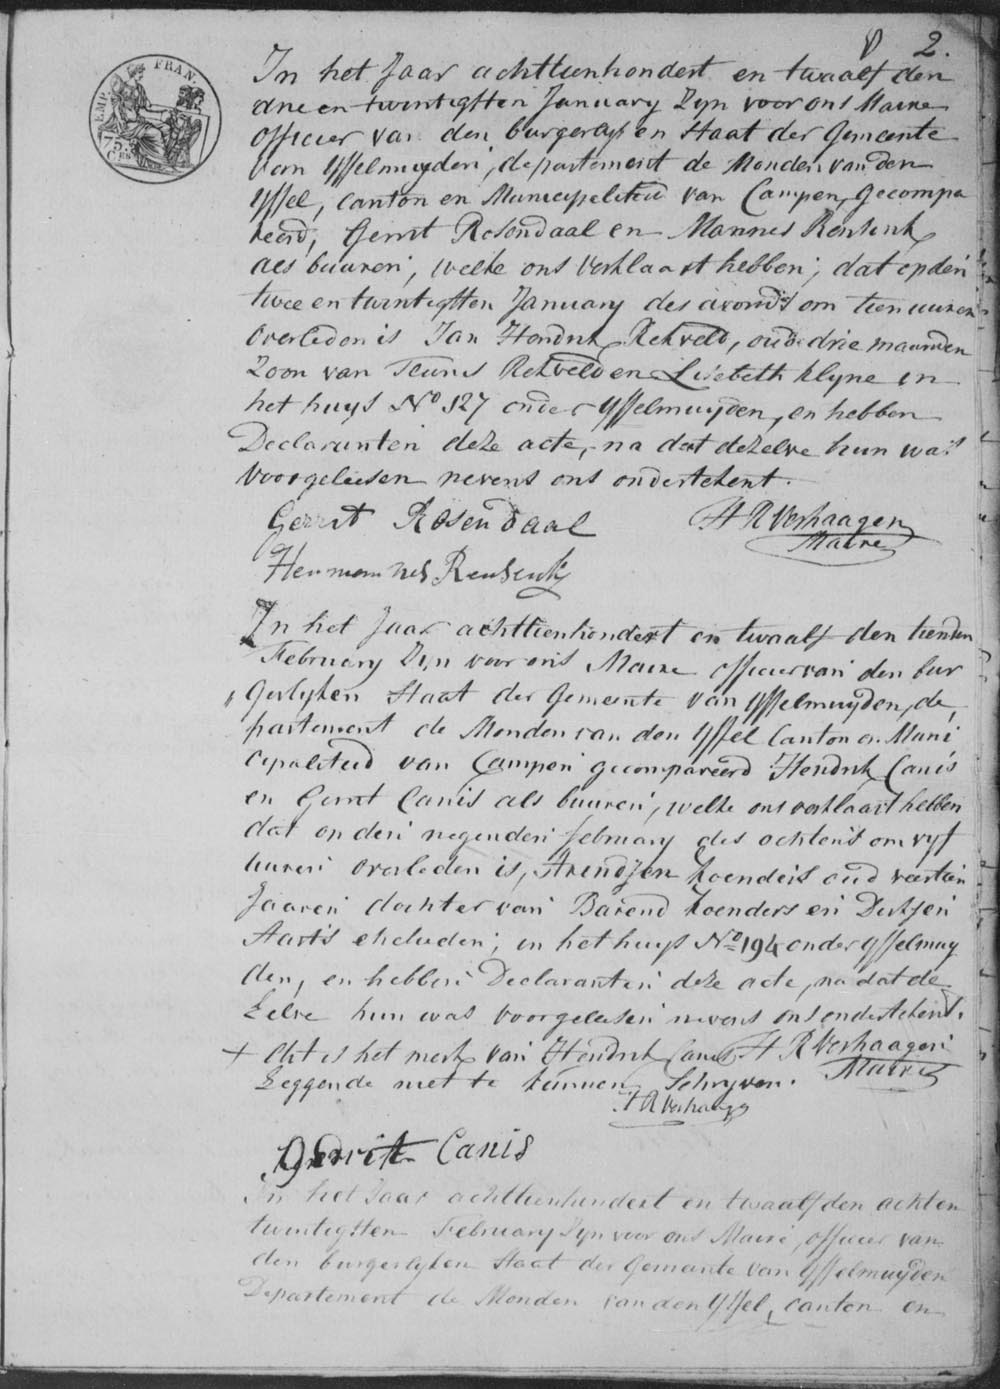 2.
EMP. FRAN.
75.
CES
In het Jaar achttienhondert en twaalf den
drie en twintigsten January Zyn voor ons Maire
officier van den burgerlyken Staat der Gemeente
van Ysselmuyden, departement de Monden van den
Yssel, Canton en Municipaliteid van Campen, gecompa
reerd, Gerrit Rosendaal en Mannes Rensink
als buuren, welke ons verklaart hebben, dat op den
twee en twintigsten January des avonds om tien uuren
overleden is Jan Hendrik Rekveld, oud drie maanden
Zoon van Teunis Rekveld en Lisebeth Klyne in
het huys No 127 onder Ysselmuyden, en hebben
Declaranten deze acte, na dat dezelve hun was
voorgeleesen nevens ons ondertekent.
Gerrit Rosendaal H R Verhaagen
Maire
Hermannes Rensink
In het Jaar achttienhondert en twaalf den tienden
February Zyn voor ons Maire officier van den bur
gerlyken Staat der Gemeente van Ysselmuyden, de
partement de Monden van den Yssel Canton en Muni
cipaliteid van Campen gecompareerd Hendrik Canis
en Gerrit Canis als buuren, welke ons verklaart hebben
dat op den negenden february des achtens om vyf
uuren overleden is, Arendjen Koenders oud veertien
Jaaren dochter van Barend Koenders en Dirkjen
Aarts eheluden, in het huys No 194 onder Ysselmuy
den, en hebben Declaranten deze acte, na dat de
Zelve hun was voorgeleesen nevens ons ondertekent.
+ dit is het merk van Hendrik Canis H R Verhaagen
Zeggende niet te kunnen Schryven. Maire
H R Verhaagen
Gerrit Canis
In het Jaar achttienhondert en twaalf den acht en
twintigsten February Zyn voor ons Maire, officier van
den burgerlyken Staat der Gemeente van Ysselmuyden
Departement de Monden van den Yssel, canton en